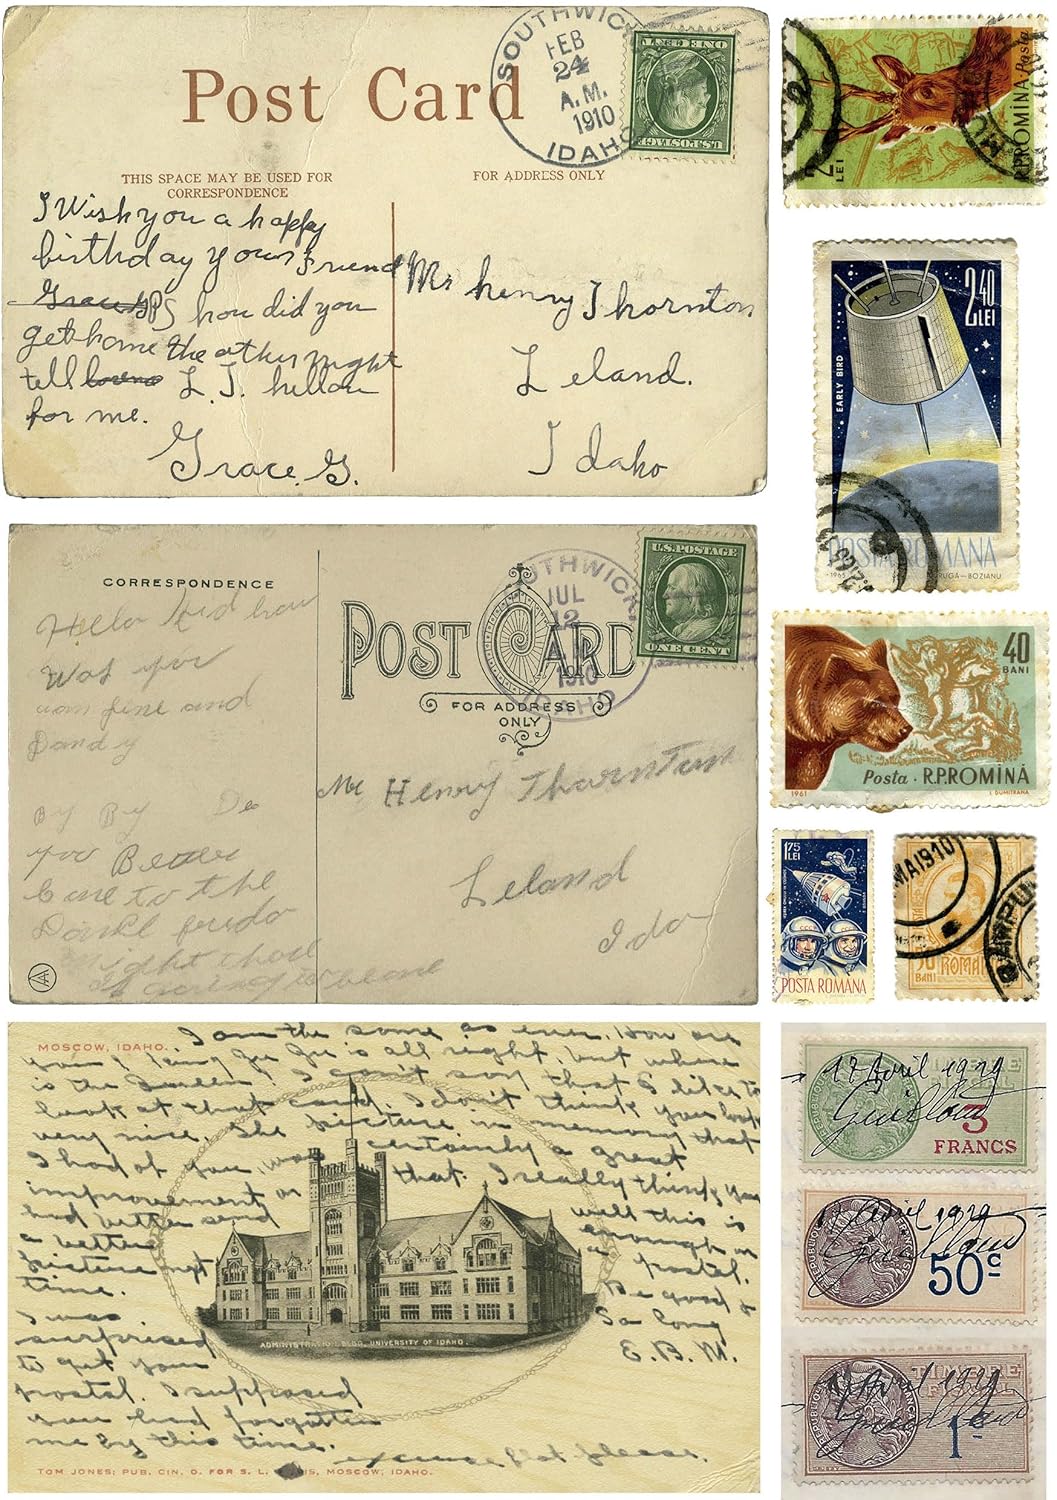 Post Card
THIS SPACE MAY BE USED FOR
CORRESPONDENCE
FOR ADDRESS ONLY
SOUTHWICK
FEB
24
A.M.
1910
IDAHO
ONE CENT
U.S. POSTAGE
I Wish you a happy
birthday your Friend
Grace G PS how did you
get home the other night
tell L. J. hellow
for me.
Grace. G.
Mr henry Thornton
Leland.
Idaho
2 LEI
R.P.ROMÎNA·Posta
2 40
LEI
EARLY BIRD
POSTA ROMANA
1965
DRUGA–BOZIANU
CORRESPONDENCE
Hello Kid how
Was you
am fine and
Dandy
By By
you Better
to the
POST CARD
FOR ADDRESS
ONLY
SOUTHWICK
JUL
12
1910
IDAHO
U.S. POSTAGE
ONE CENT
Mr Henry Thornton
Leland
Ida
40
BANI
Posta · R.P.ROMÎNA
1961
I. DUMITRANA
1,75
LEI
POSTA ROMANA
MAI 910
50 ROMANIA
BANI
MOSCOW, IDAHO.
I am the same as ever. How are
you? King Gu Gu is all right, but where
is the Queen? I can't say that I like to
look at that card. I don't think you look
very nice. The picture in memory that
I had of you was certainly a great
improvement on that. I really think you
had better send well this is
a better enough on
picture next a
time. postal.
I was Be good &
surprised So long
to get your E. B. M.
postal. I supposed
you had forgotten
me by this time.
excuse please.
ADMINISTRATION BLDG. UNIVERSITY OF IDAHO.
TOM JONES; PUB. CIN. O. FOR S. L. MOSCOW, IDAHO.
17 Avril 1929
3
FRANCS
17 Avril 1929
50c
TIMBRE
FISCAL
17 Avril 1929
1F